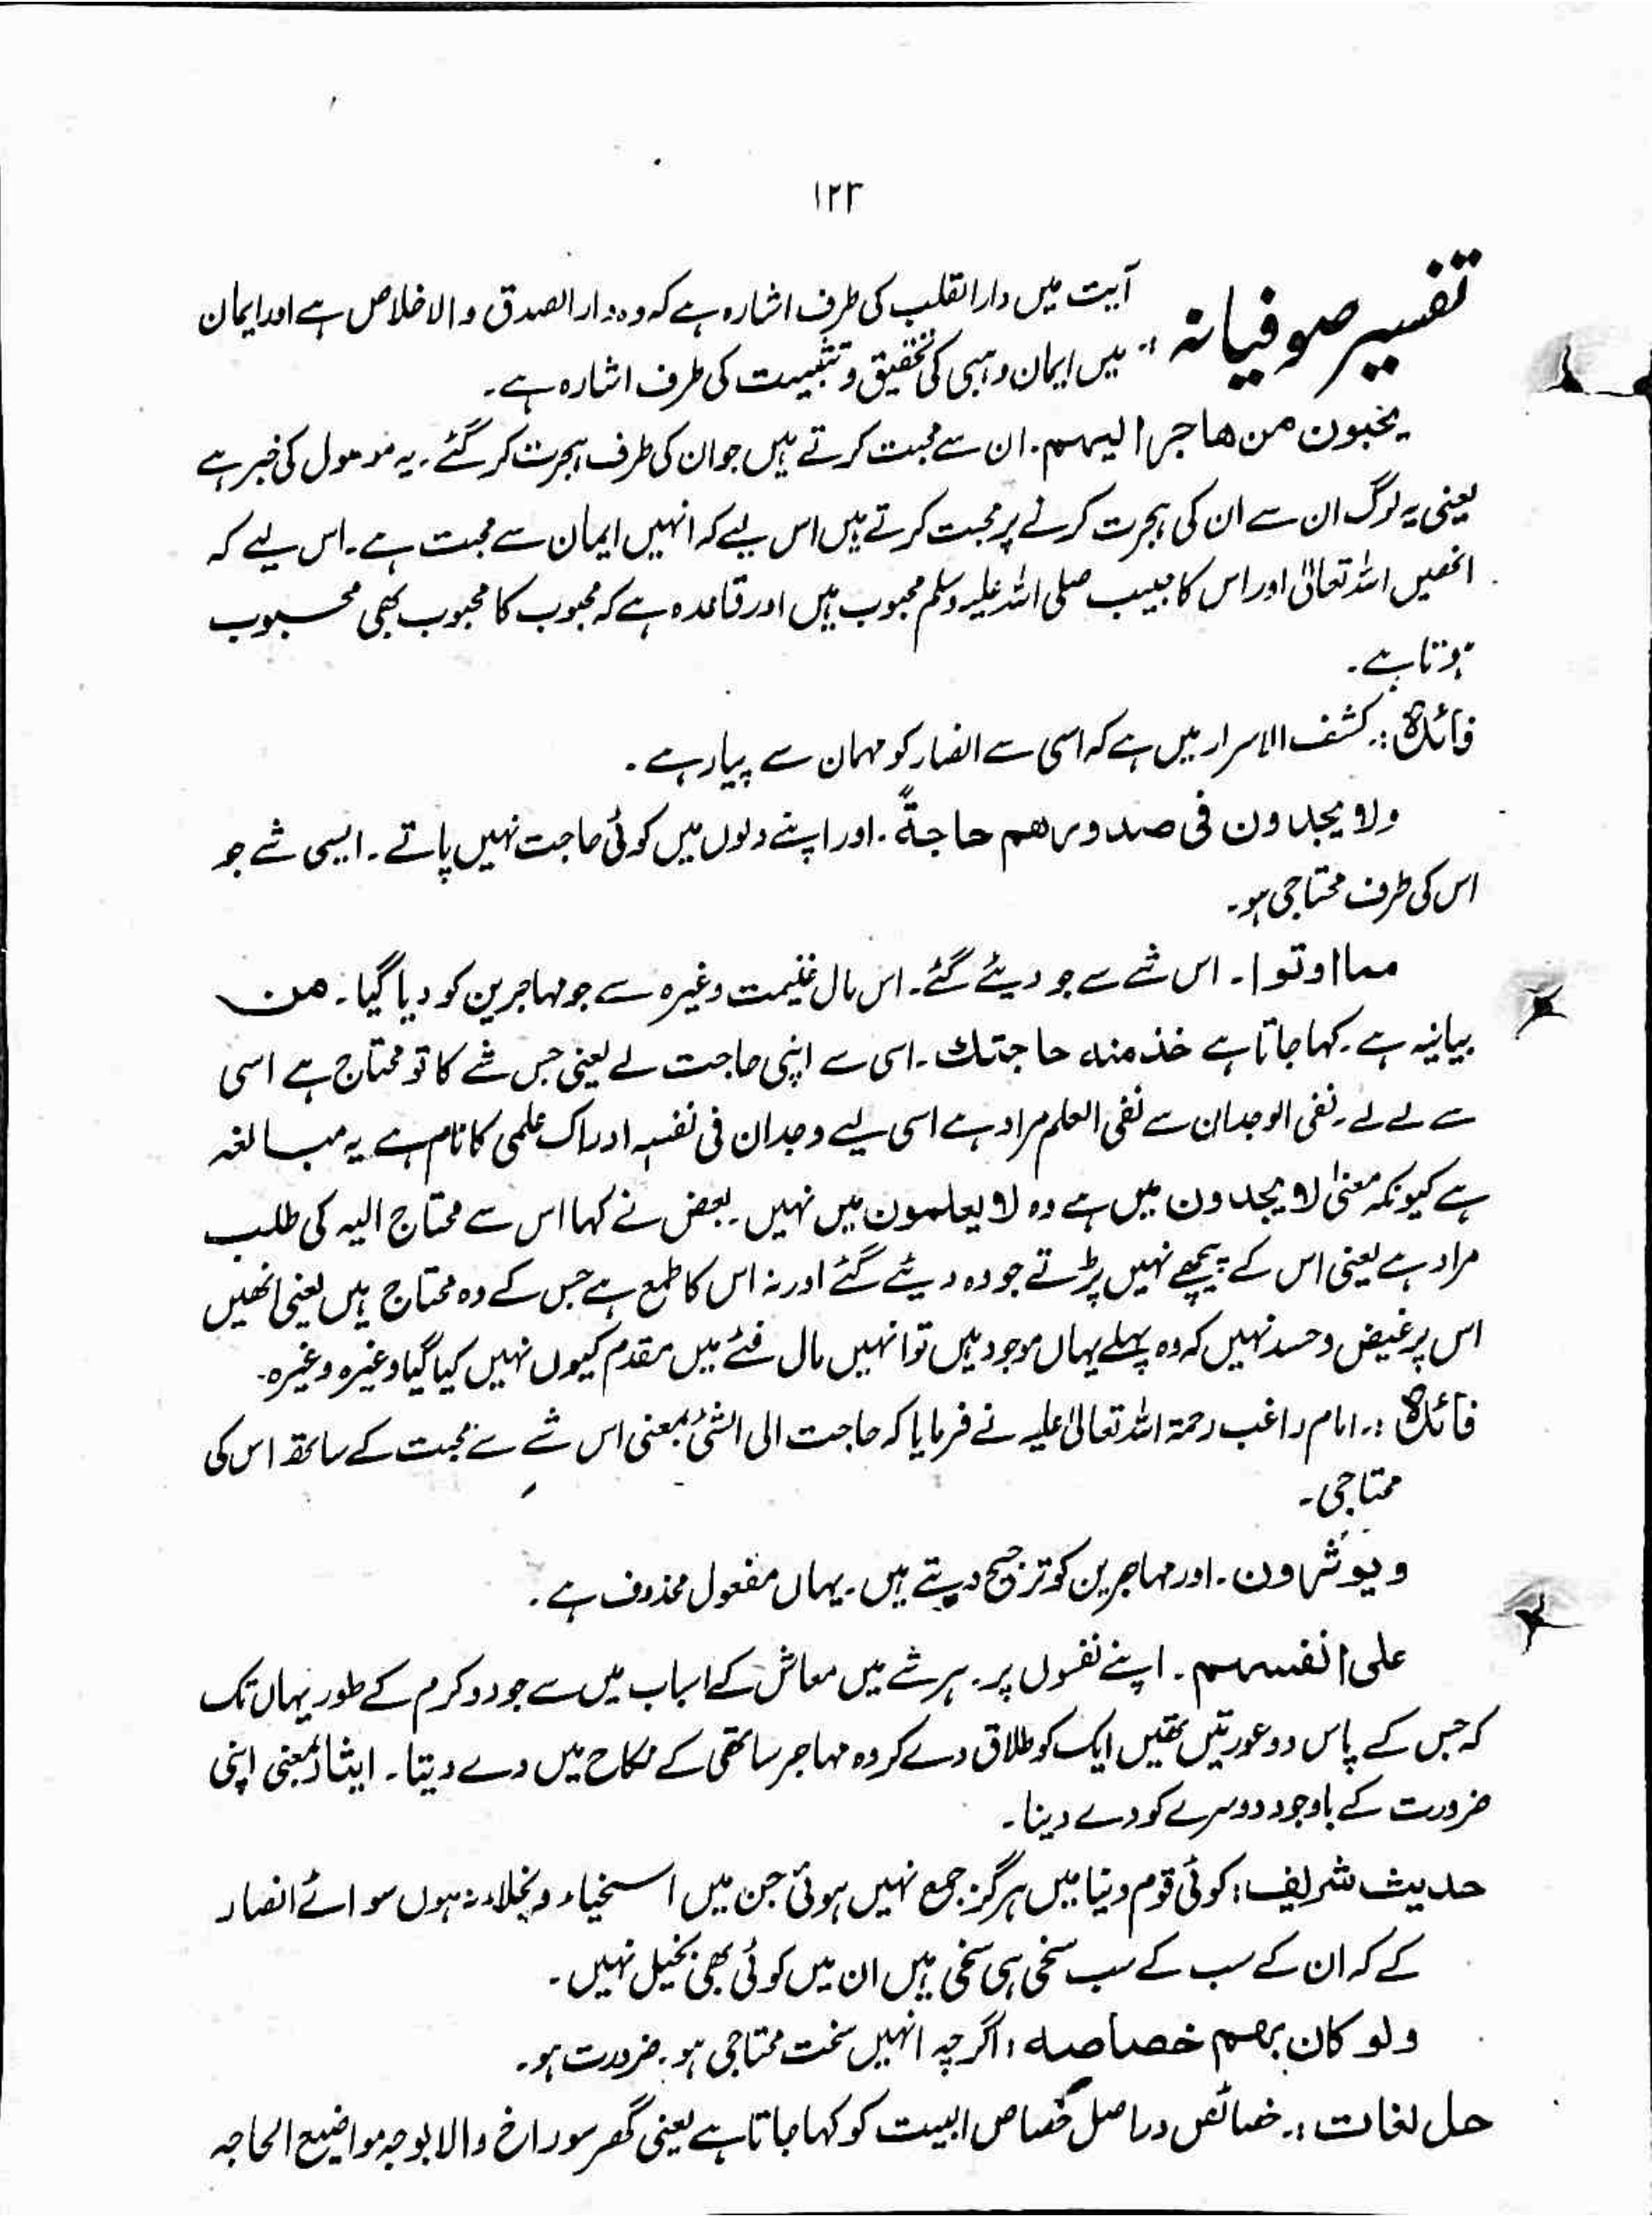 ١٢٣
تفسیر صوفیانہ :- آیت میں دار القلب کی طرف اشارہ ہے کہ وہ دار الصدق والاخلاص ہے اور ایمان
میں ایمان وہبی کی تحقیق و تثبیت کی طرف اشارہ ہے۔
یحبون من ھاجر الیھم۔ ان سے محبت کرتے ہیں جو ان کی طرف ہجرت کر گئے۔ یہ موصول کی خبر ہے
یعنی یہ لوگ ان سے ان کی ہجرت کرنے پر محبت کرتے ہیں اس لیے کہ انہیں ایمان سے محبت ہے۔ اس لیے کہ
انھیں اللہ تعالیٰ اور اس کا حبیب صلی اللہ علیہ وسلم محبوب ہیں اور قاعدہ ہے کہ محبوب کا محبوب بھی محبوب
ہوتا ہے۔
فائدہ :۔ کشف الاسرار میں ہے کہ اسی سے انصار کو مہمان سے پیار ہے۔
ولا یجدون فی صدورھم حاجةً۔ اور اپنے دلوں میں کوئی حاجت نہیں پاتے۔ ایسی شے جو
اس کی طرف محتاجی ہو۔
مما اوتوا۔ اس شے سے جو دیئے گئے۔ اس مال غنیمت وغیرہ سے جو مہاجرین کو دیا گیا۔ من
بیانیہ ہے۔ کہا جاتا ہے خذ منہ حاجتك۔ اسی سے اپنی حاجت لے یعنی جس شے کا تو محتاج ہے اسی
سے لے لے۔ نفی الوجدان سے نفی العلم مراد ہے اسی لیے وجدان فی نفسہ ادراک علمی کا نام ہے یہ مبالغہ
ہے کیونکہ معنیٰ لا یجدون میں ہے وہ لا یعلمون میں نہیں۔ بعض نے کہا اس سے محتاج الیہ کی طلب
مراد ہے یعنی اس کے پیچھے نہیں پڑتے جو وہ دیئے گئے اور نہ اس کا طمع ہے جس کے وہ محتاج ہیں یعنی انھیں
اس پر غیض و حسد نہیں کہ وہ پہلے یہاں موجود ہیں تو انہیں مال فئے میں مقدم کیوں نہیں کیا گیا وغیرہ وغیرہ۔
فائدہ :۔ امام راغب رحمۃ اللہ تعالیٰ علیہ نے فرمایا کہ حاجت الی الشئ بمعنی اس شے سے محبت کے ساتھ اس کی
محتاجی۔
ویوثرون۔ اور مہاجرین کو ترجیح دیتے ہیں۔ یہاں مفعول محذوف ہے۔
علی انفسھم۔ اپنے نفسوں پر۔ ہر شے میں معاش کے اسباب میں سے جود و کرم کے طور یہاں تک
کہ جس کے پاس دو عورتیں تھیں ایک کو طلاق دے کر وہ مہاجر ساتھی کے نکاح میں دے دیتا۔ ایثار بمعنی اپنی
ضرورت کے باوجود دوسرے کو دے دینا۔
حدیث شریف : کوئی قوم دنیا میں ہرگز جمع نہیں ہوئی جن میں اسخیاء و بخلاء نہ ہوں سوائے انصار
کے کہ ان کے سب کے سب سخی ہی سخی ہیں ان میں کوئی بھی بخیل نہیں۔
ولو کان بھم خصاصہ : اگرچہ انہیں سخت محتاجی ہو۔ ضرورت ہو۔
حل لغات :۔ خصائص دراصل خصاص البیت کو کہا جاتا ہے یعنی گھر سوراخ والا بوجہ مواضع الحاجہ